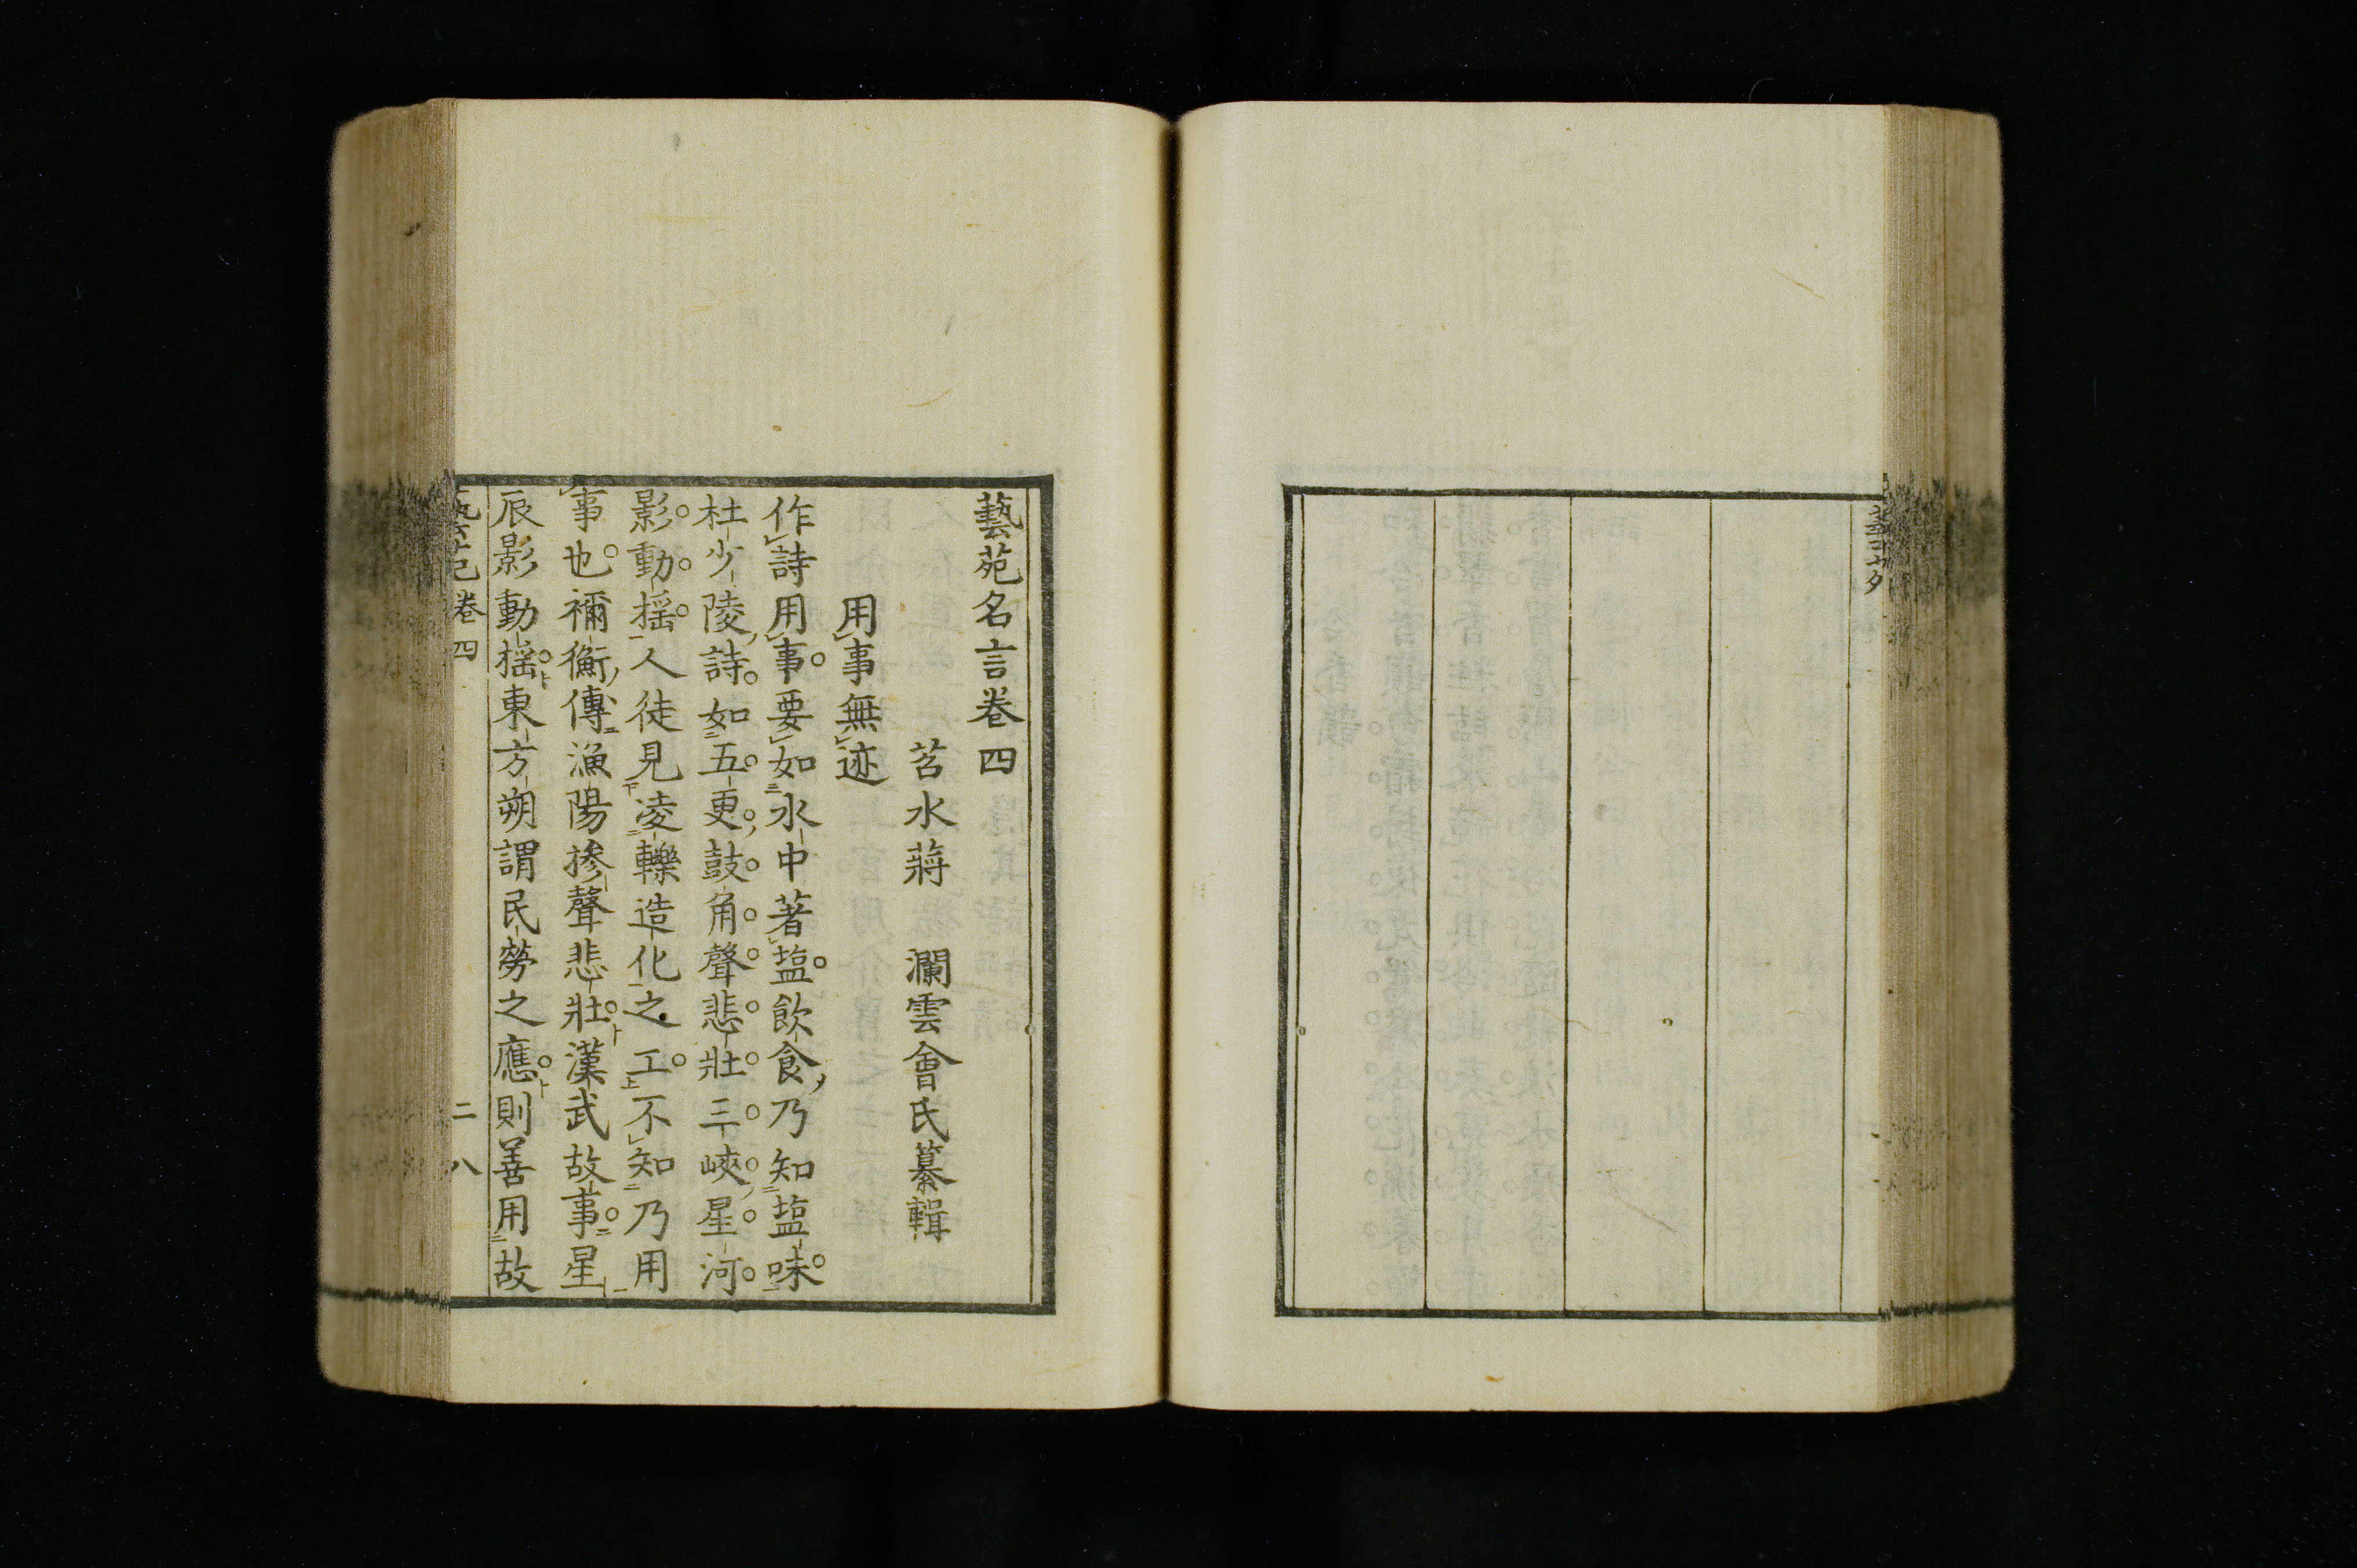 藝苑名言卷四
苕水蔣 瀾雲會氏纂輯
用事無迹
作詩用事要如水中著塩飲食乃知塩味
杜少陵詩如五更鼓角聲悲壯三峽星河
影動揺人徒見凌轢造化之工不知乃用
事也禰衡傳漁陽摻聲悲壯漢武故事星
辰影動揺東方朔謂民勞之應則善用故
藝苑 卷四 二 八